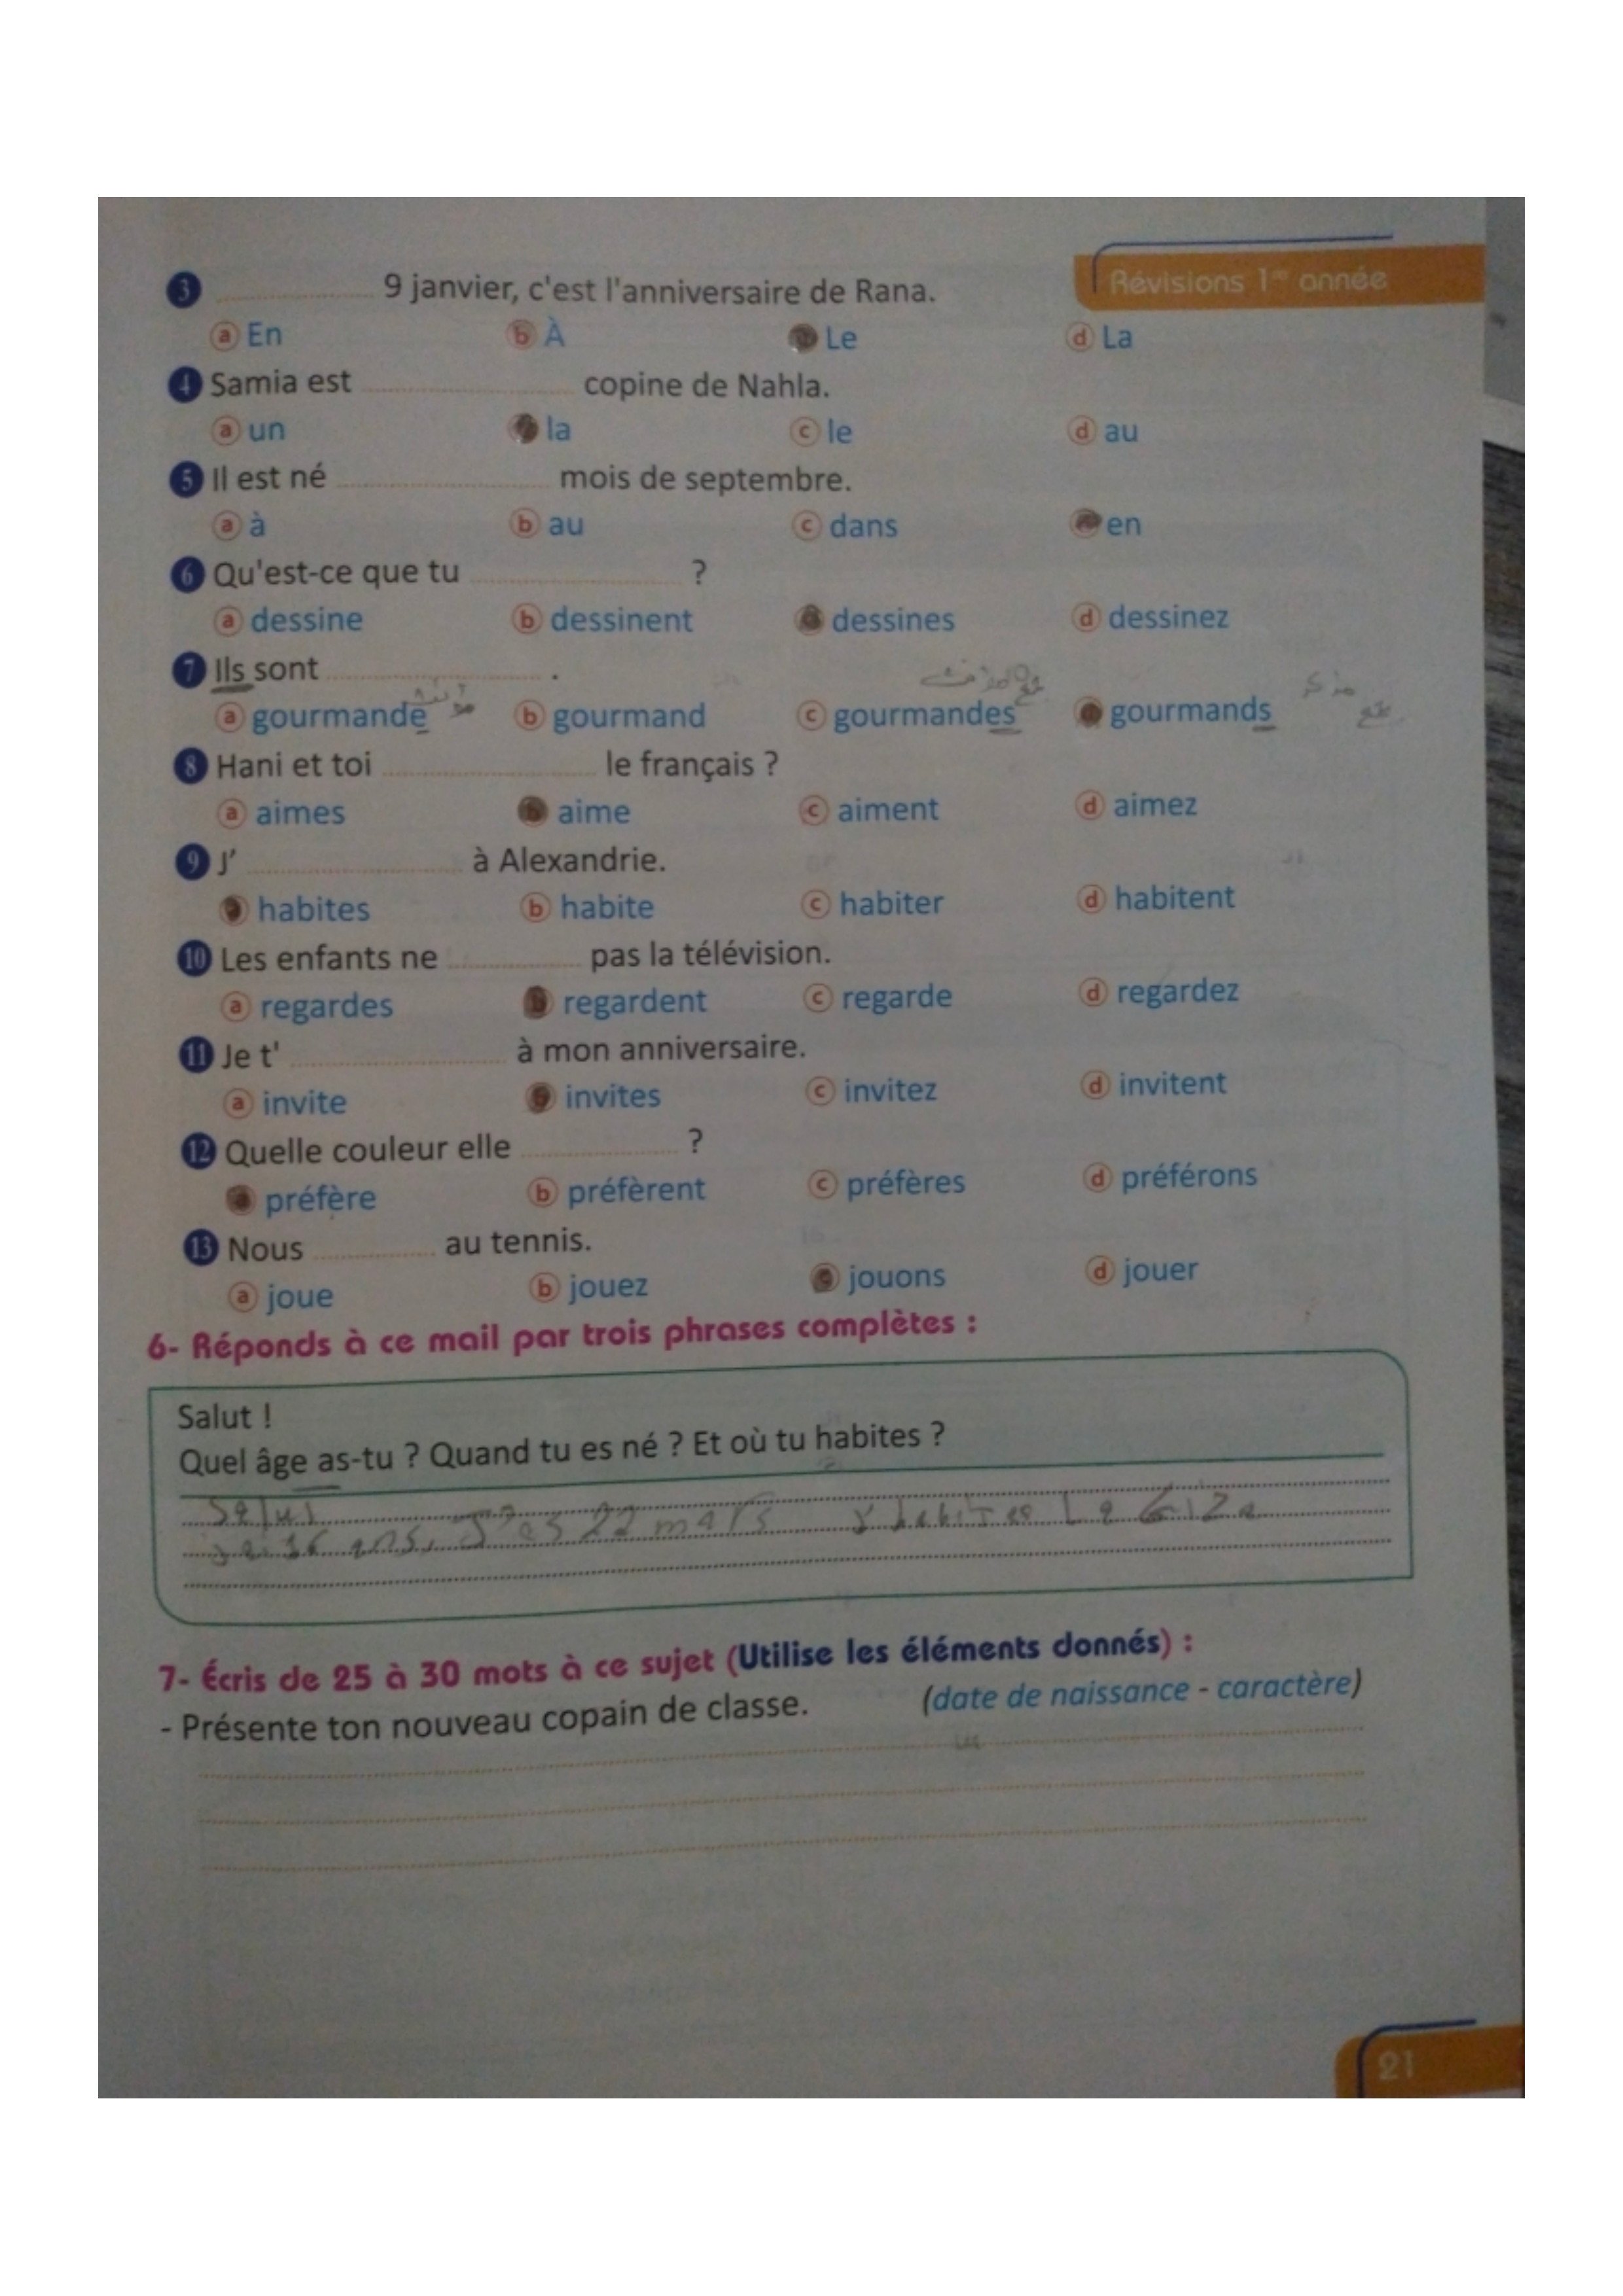 Révisions 1re année
3 ............ 9 janvier, c'est l'anniversaire de Rana.
a En b À Le d La
4 Samia est ............ copine de Nahla.
a un la c le d au
5 Il est né ............ mois de septembre.
a à b au c dans en
6 Qu'est-ce que tu ............ ?
a dessine b dessinent dessines d dessinez
7 Ils sont ............ .
a gourmande b gourmand c gourmandes gourmands
8 Hani et toi ............ le français ?
a aimes aime c aiment d aimez
9 J' ............ à Alexandrie.
habites b habite c habiter d habitent
10 Les enfants ne ............ pas la télévision.
a regardes regardent c regarde d regardez
11 Je t' ............ à mon anniversaire.
a invite invites c invitez d invitent
12 Quelle couleur elle ............ ?
préfère b préfèrent c préfères d préférons
13 Nous ............ au tennis.
a joue b jouez jouons d jouer
6- Réponds à ce mail par trois phrases complètes :
Salut !
Quel âge as-tu ? Quand tu es né ? Et où tu habites ?
Salut
16 ans, J'es 22 mars habites La Giza
7- Écris de 25 à 30 mots à ce sujet (Utilise les éléments donnés) :
- Présente ton nouveau copain de classe. (date de naissance - caractère)
21